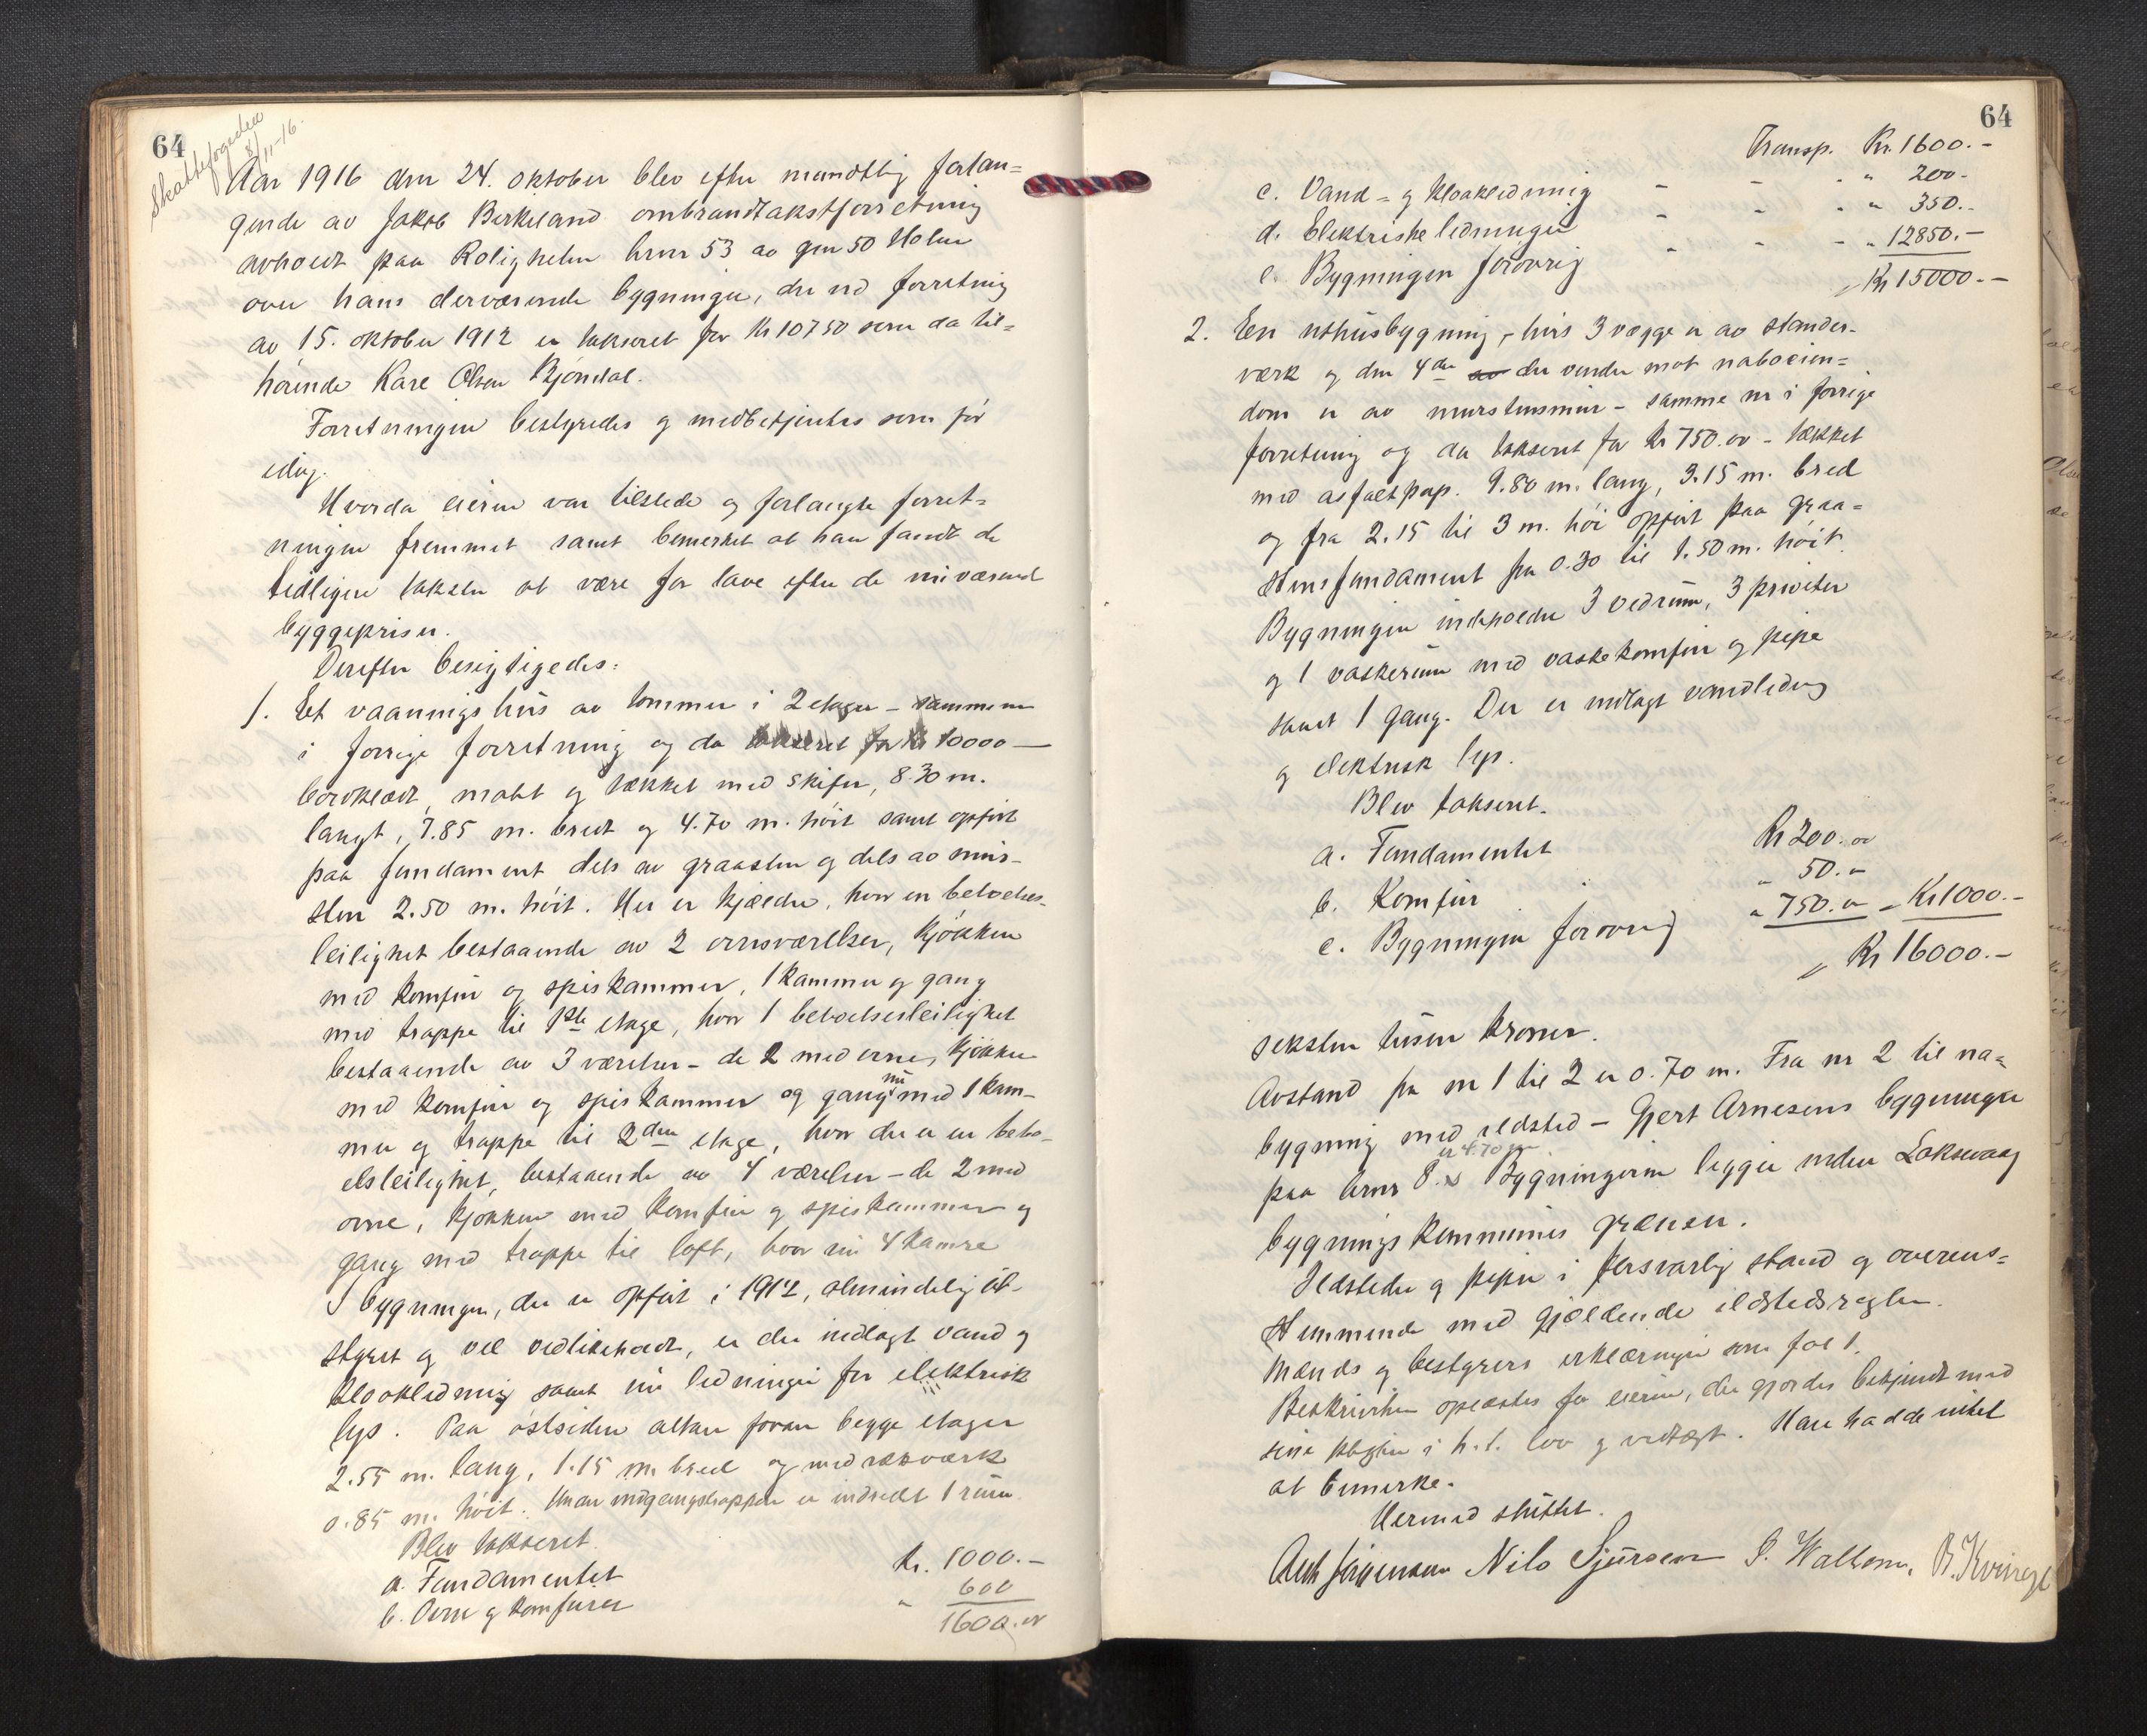 64
Skattefogeden
8/11-16.
Aar 1916 den 24. oktober blev efter mundtlig forlan=
gende av Jakob Birkeland ombrandtakstforretning
avholdt paa Roligheten brnr 53 av gnr 50 Holen
over hans derværende bygninger, der ved forretning
av 15. oktober 1912 er takseret for Kr 10750 som da til=
hörende Karl Olsen Bjöndal.
Forretningen bestyredes og medbetjentes som för
idag.
Hvorda eieren var tilstede og forlangte forret=
ningen fremmet samt bemerket at han fandt de
tidligere takster at være for lave efter de nuværende
byggepriser.
Derefter besigtigedes:
1. Et vaaningshus av tömmer i 2 etager - samme nr
i forrige forretning og da takseret for Kr 10000 —
bordklædt, malt og tækket med skifer, 8.30 m.
langt, 7.85 m. bredt og 4.70 m. höit samt opfört
paa fundament dels av graasten og dels av mur-
sten 2.50 m. höit. Her er kjælder, hvor en beboelses-
leilighet bestaaende av 2 ovnsværelser, kjökken
med komfur og spiskammer, 1 kammer og gang
med trappe til 1ste etage, hvor 1 beboelsesleilighet
bestaaende av 3 værelser - de 2 med ovne, kjökken
med komfur og spiskammer og gang nu med 1 kam-
mer og trappe til 2den etage, hvor der er en bebo-
elsleilighet, bestaaende av 4 værelser - de 2 med
ovne, kjökken med komfur og spiskammer og
gang med trappe til loft, hvor nu 4 kamre
I bygningen, der er opfört i 1912, almindelig ut-
styret og vel vedlikeholdt, er der indlagt vand og
kloakledning samt nu ledninger for elektrisk
lys. Paa östsiden altan foran begge etager
2.55 m. lang, 1.15 m. bred og med rækværk
0.85 m. höit. Under indgangstrappen er indredet 1 rum.
Blev takseret.
a. Fundamentet Kr. 1000.-
b. Ovne og komfurer " 600
1600.00
64
Transp. Kr. 1600.-
c. Vand- og kloakledning - - - " 200-
d. Elektriske ledninger - - - " 350.-
e. Bygningen forövrig - - - " 12850.-
Kr 15000.-
2. En uthusbygning, - hvis 3 vægge er av stander-
værk og den 4de av der vender mot naboeien=
dom er av murstensmur - samme nr i forrige
forretning og da takseret for Kr 750.00 - tækket
med asfaltpap. 9.80 m. lang, 3.15 m. bred
og fra 2.15 til 3 m. höi opfört paa graa=
stensfundament fra 0.30 til 1.50 m. höit.
Bygningen indeholder 3 vedrum, 3 priveter
og 1 vaskerum med vaskekomfur og pipe
samt 1 gang. Der er indlagt vandledning
og elektrisk lys.
Blev takseret.
a. Fundamentet Kr 200.00
b. Komfur " 50.-
c. Bygningen forövrig " 750.00 - Kr 1000.-
Kr 16000.-
seksten tusen kroner.
Avstand fra nr 1 til 2 er 0.70 m. Fra nr 2 til na=
bygning med ildsted - Gjert Arnesens bygninger
er 4.70 m
paa brnr 8. x Bygningerne ligger inden Laksevaag
bygningskommunes grænser.
Ildsteder og piper i forsvarlig stand og overens=
stemmende med gjældende ildstedsregler.
Mænds og bestyrers erklæringer som fol 1.
Beskrivelsen oplæstes for eieren, der gjordes bekjendt med
sine pligter i h.t. lov og vedtægt. Han hadde intet
at bemerke.
Hermed sluttet.
Nils Sjursen